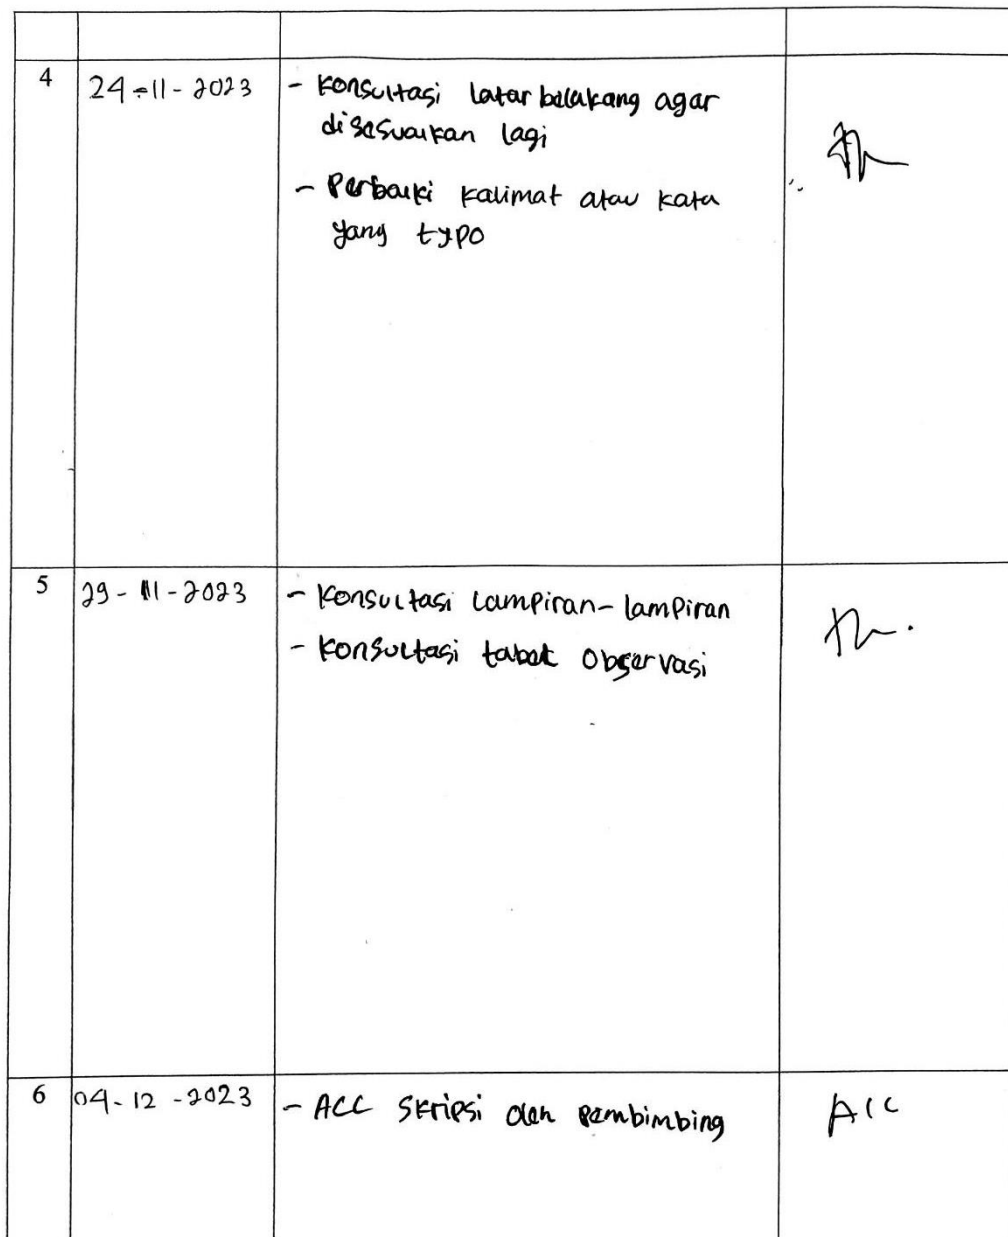 4
24-11-2023
- Konsultasi latar belakang agar
disesuaikan lagi
- Perbaiki kalimat atau kata
yang typo
5
29-11-2023
- Konsultasi lampiran-lampiran
- Konsultasi tabel observasi
6
04-12-2023
- ACC Skripsi oleh pembimbing
ACC